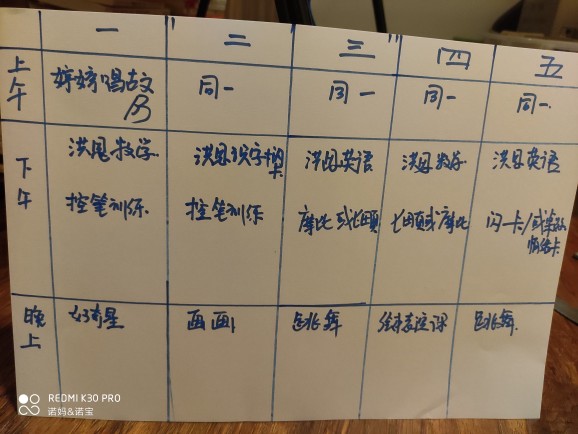 一 二 三 四 五
上午 婷婷唱古文 同一 同一 同一 同一.
下午 洪恩数学. 洪恩识字+ 洪恩英语 洪恩数学. 洪恩英语
卡
控笔训练. 控笔训练 摩比或七田真 七田真或摩比 闪卡/或
晚上 画画 跳舞 跳舞.
REDMI K30 PRO
诺妈&诺宝